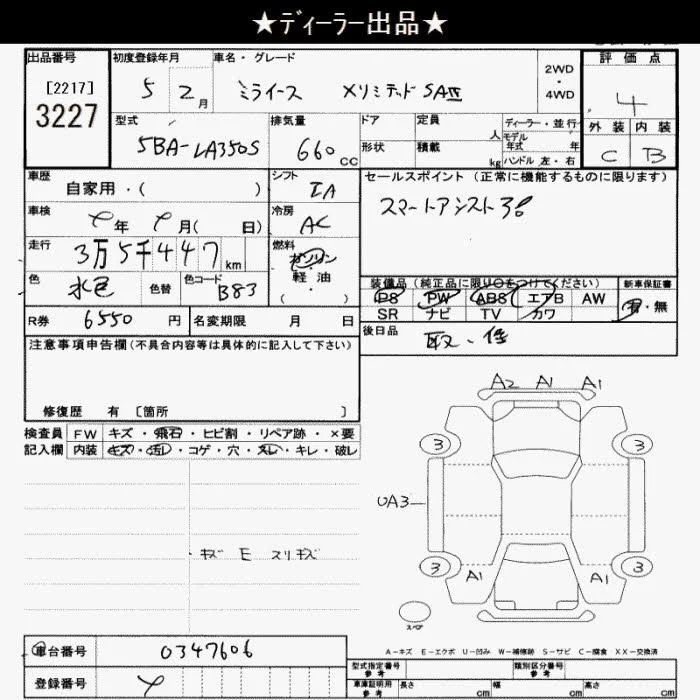 ★ディーラー出品★
出品番号
[2217]
3227
初度登録年月
5 2月
車名・グレード
ミライース XリミテッドSAⅢ
2WD
・
4WD
評価点
4
外装 内装
C B
型式
5BA-LA350S
排気量
660cc
ドア
形状
定員
人
積載
kg
ディーラー・並行
モデル
年式 年
ハンドル 左・右
車歴
自家用・( )
シフト
IA
セールスポイント (正常に機能するものに限ります)
スマートアシスト3!
車検
年 月( 日)
冷房
AC
走行
3万5千447km
燃料
ガソリン
軽・油
・
( )
色
水色
色替
色コード
B83
装備品(純正品に限り○をつけてください)
PS PW ABS エアB AW
SR ナビ TV カワ
新車保証書
有・無
R券 6550円
名変期限 月 日
後日品
取・保
注意事項申告欄(不具合内容等は具体的に記入して下さい)
修復歴 有 〔箇所 〕
検査員
記入欄
FW キズ・飛石・ヒビ割・リペア跡・×要
内装 キズ・汚レ・コゲ・穴・スレ・キレ・破レ
・キズ E スリキズ
A2 A1 A1
3 3
UA3
3 3
A1 A1
スペア
A-キズ E-エクボ U-凹み W-補修跡 S-サビ C-腐食 XX-交換済
車台番号 0347606
登録番号
型式指定番号
参考
類別区分番号
参考
車庫証明用
参考
長さ cm 幅 cm 高さ cm